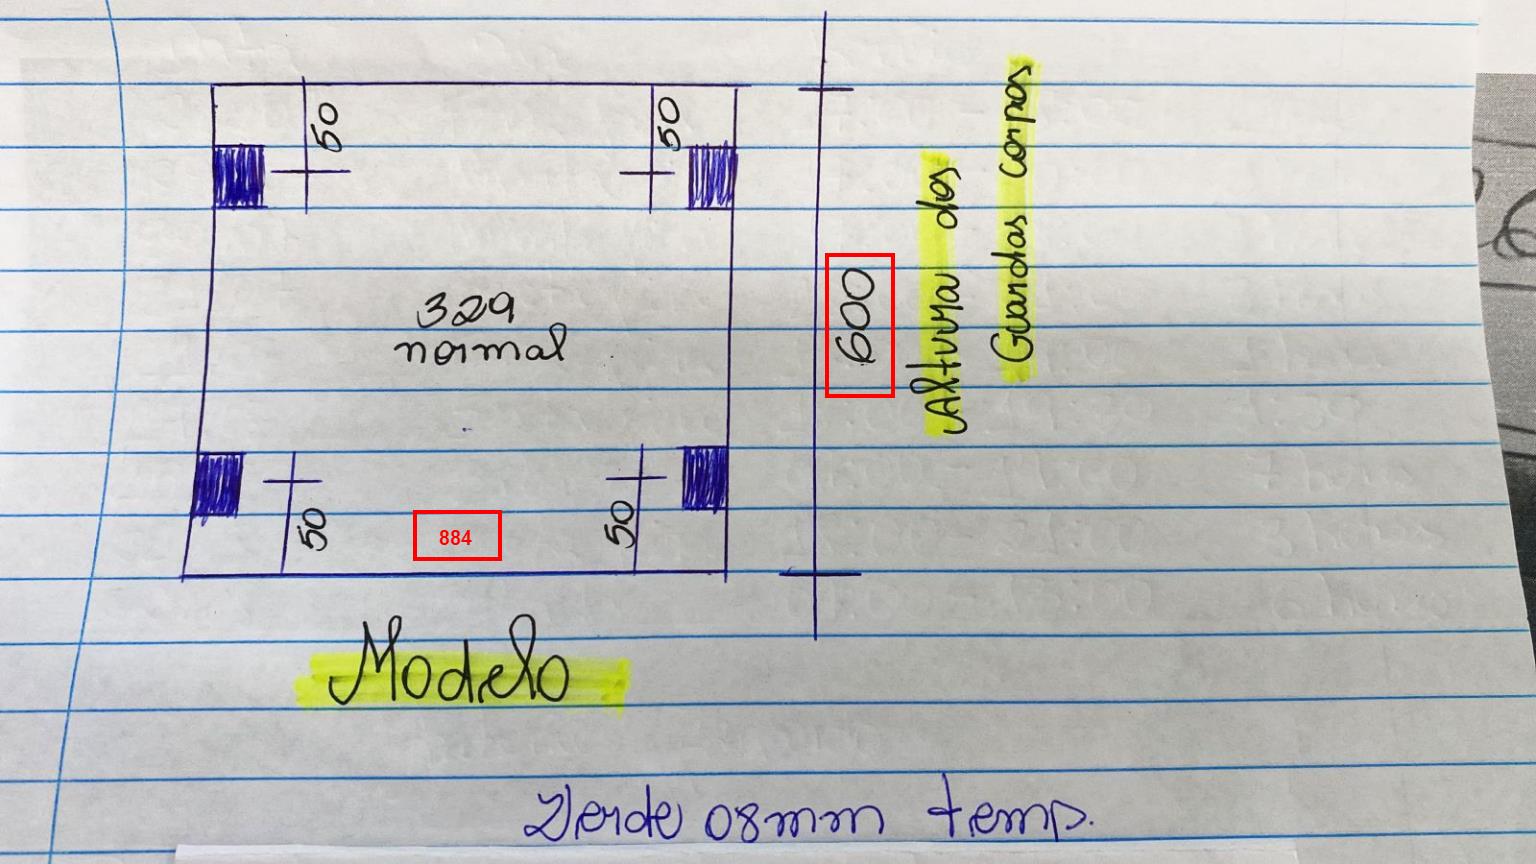 50
50
329
normal
600
Altura dos
Guardas corpos
50
50
884
Modelo
Verde 08mm temp.